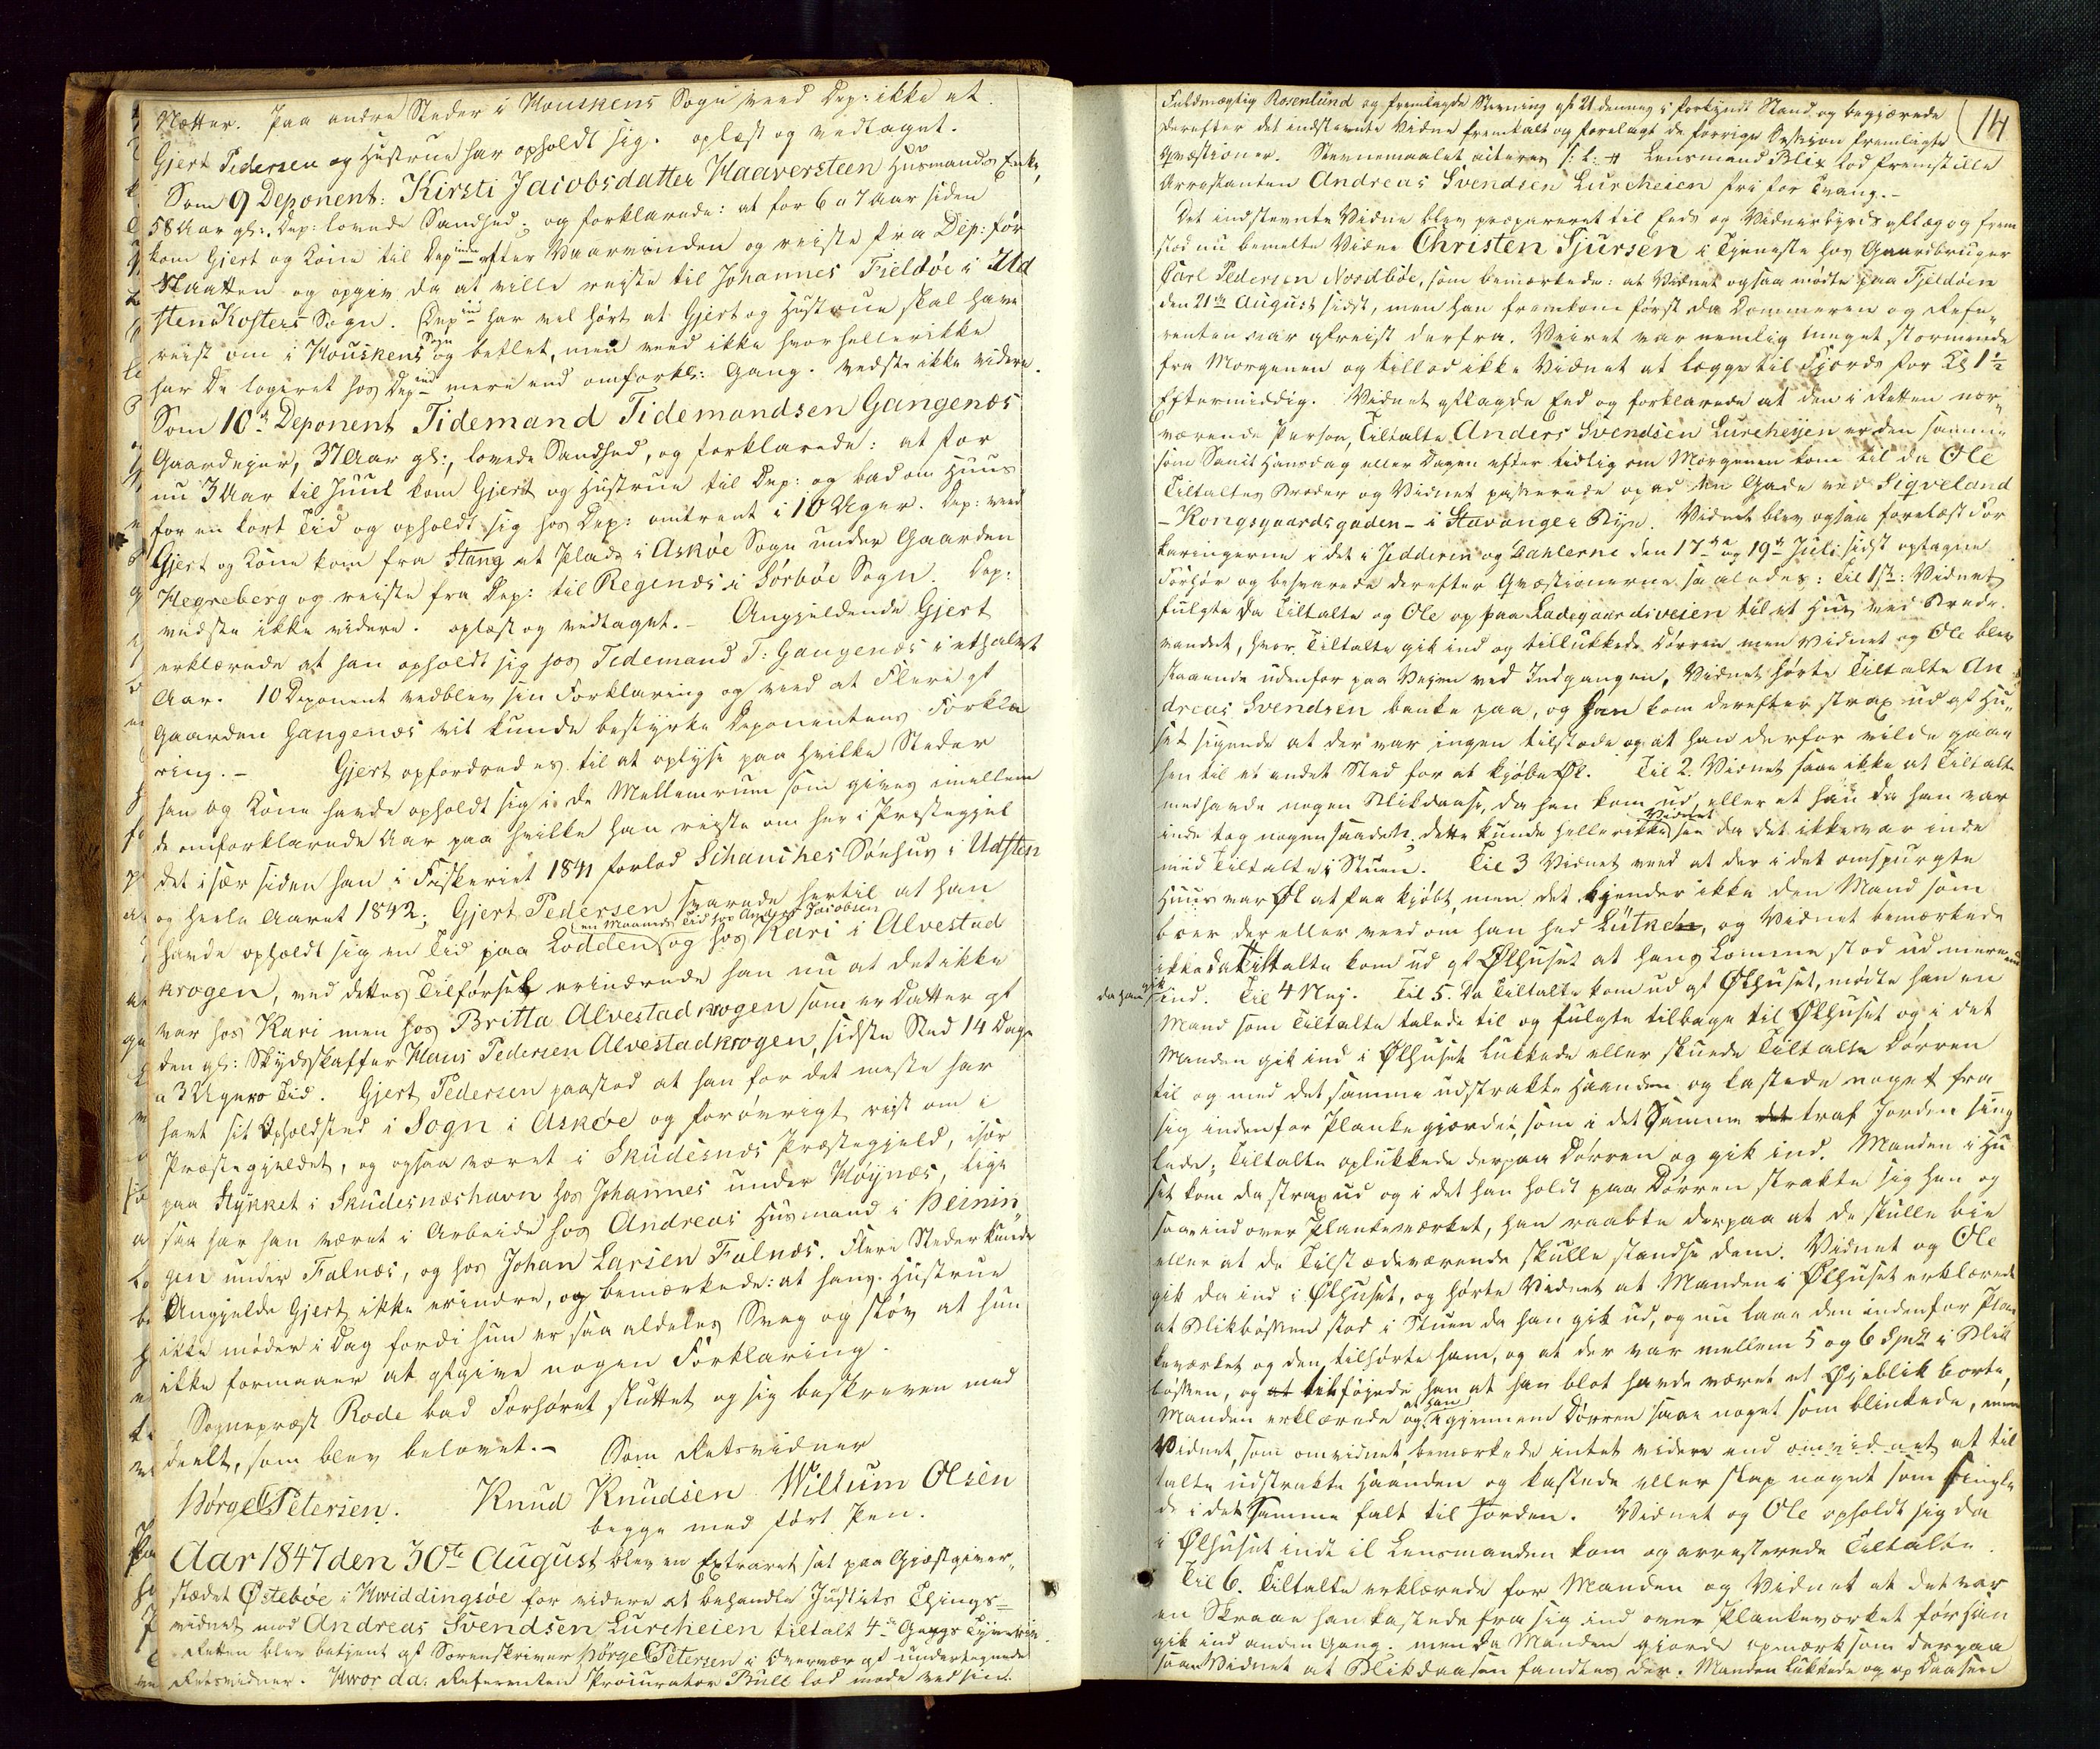 Nætter. Paa andre Steder i Houskens Sogn veed Dep: ikke at
Gjert Pedersen og Hustrue har opholdt sig. oplæst og vedtaget.
Som 9 Deponent: Kirsti Jacobsdatter Haaversteen Husmands Enke,
58 Aar gl:. Dep: lovede Sandhed; og forklarede: at for 6 a 7 Aar siden
kom Gjert og Kone til Dep inden efter Vaarvinden og reiste fra Dep: før
Slaatten og opgiv da at ville reise til Johannes Fieldøe i Ud
sten Klosters Sogn. Dep in har vel hørt at Gjert og Hustrue skal have
reist om i Houskens Sogn og betlet, men veed ikke hvor heller ikke
har De logeret hos Dep ind mere end omforkl: Gang. vedste ikke videre.
Som 10de Deponent Tidemand Tidemandsen Gangenæs
Gaardejer, 37 Aar gl:, lovede Sandhed, og forklarede: at for
nu 3 Aar til Juul kom Gjert og Hustrue til Dep: og bad om Huus
for en kort Tid og opholdt sig hos Dep: omtrent i 10 Uger. Dep: veed
Gjert og Kone kom fra Stang et Plads i Askøe Sogn under Gaarden
Hegreberg og reiste fra Dep: til Regenæs i Sørbøe Sogn. Dep:
vedste ikke videre. oplæst og vedtaget. - Angjeldende Gjert
erklærede at han opholdt sig hos Tidemand T: Gangenæs i et halvt
Aar. 10 Deponent vedblev sin Forklaring og veed at Flere af
Gaarden Gangenæs vil kunde bestyrke Deponentens Forkla
ring. - Gjert opfordredes til at oplyse paa hvilke Steder
han og Kone havde opholdt sig i de Mellemrum som gives imellem
de omforklarede Aar paa hvilke han reiste om her i Præstegjel
det især siden han i Fiskeriet 1841 forlod Schanches Søehus i Udsten
og heele Aaret 1842; Gjert Pedersen svarede hertil at han
en Maaneds Tid hos Anders Jacobsen
havde opholdt sig en Tid paa Lodden og hos Kari i Alvestad
krogen, ved dettes Tilførsel erindrede han nu at det ikke
var hos Kari men hos Britta Alvestadkrogen som er Datter af
den gl: Skydsskaffer Hans Pedersen Alvestadkrogen, sidste Sted 14 Dage
a 3 Ugers Tid. Gjert Pedersen paastod at han for det meste har
havt sit Opholdsted i Sogn i Askøe og forøvrigt reist om i
Præstegjeldet, og ogsaa været i Skudesnæs Præstegjeld, især
paa Stykket i Skudesnæshavn hos Johannes under Høynæs, lige
saa har han været i Arbeide hos Andreas Husmand i Heinin¬
gen under Falnæs, og hos Johan Larsen Falnæs. Flere Steder kunde
Angjelde Gjert ikke erindre, og bemærkede: at hans Hustrue
ikke møder i Dag fordi hun er saa aldeles Svag og sløv at hun
ikke formaaer at afgive nogen Forklaring.
Sognepræst Rode bad Forhøret sluttet og sig beskreven med
deelt, som blev belovet. - Som Retsvidner
Børge Petersen. Knud Knudsen Willum Olsen
begge med ført Pen.
Aar 1847 den 30te August blev en Extraret sat paa Gjæstgiver¬
stædet Østebøe i Hwiddingsøe for videre at behandle Justits Things=
vidnet mod Andreas Svendsen Lurcheien tiltalt 4de Gangs Tyverie.
Retten blev betjent af Sorenskriver Børge Petersen i Overvær af undertegnede
Retsvidner. Hvor da: Referenten Procurator Bull lod møde ved sin
14
Fuldmægtig Rosenlund og fremlagde Stevning af 21 dennes i forkyndt Stand og begjærede
derefter det indstevnte Vidne fremkaldt og forelagt de forrige Session fremlagte
Qvæstioner. Stevnemaalet aiteres s: l: # Lensmand Blix lod fremstille
Arrestanten Andreas Svendsen Lurcheien fri for Tvang. -
Det indstevnte Vidne blev præpareret til Eeds og Vidnesbyrds aflæg og frem
stod nu bemelte Vidne Christen Sjursen i Tjeneste hos Gaardbruger
Carl Pedersen Nordbøe, som bemærkede: at Vidnet ogsaa mødte paa Fjeldøen
den 21de August sidst, men han fremkom først da Dommeren og Refe¬
renten var afreist derfra. Veiret var nemlig meget stormende
fra Morgenen og tillod ikke Vidnet at lægge til Fjords før Kl 1½
Eftermiddag. Vidnet aflagde Eed og forklarede at den i Retten nær¬
værende Person, Tiltalte Anders Svendsen Lurcheyen er den samme
som Sanct Hansdag eller Dagen efter tidlig om Morgenen kom til da Ole
Tiltaltes Broder og Vidnet passerede op ad en Gade ved Siqveland
- Kongsgaardsgaden - i Stavanger Bye. Vidnet blev ogsaa forelæst For
karingerne i det i Jedderen og Dahlerne den 17de og 19de Juli sidst optagne
Forhør og besvarede derefter Qvæstionerne saaledes: Til 1ste: Vidnet
fulgte da Tiltalte og Ole op paa Ladegaardsveien til et Huus ved Brede
vandet, hvor Tiltalte gik ind og tillukkede Dørren men Vidnet og Ole blev
staaende udenfor paa Veien ved Indgangen, Vidnet hørte Tiltalte An
dreas Svendsen banke paa, og han kom derefter strax ud af Hu¬
set sigende at der var ingen tilstede og at han derfor vilde gaae
hen til et andet Sted for at kjøbe Øl. Til 2. Vidnet saae ikke at Tiltalte
medhavde nogen Blikdaase, da han kom ud, eller at han da han var
inde tog nogen saadan, dette kunde heller ikke Vidnet see da det ikke var inde
med Tiltalte i Stuen. Til 3 Vidnet veed at der i det omspurgte
Huus var Øl at faae kjøbt, men det kjender ikke den Mand som
boer der eller veed om han hed Lütken, og Vidnet bemærkede
ikke da Tiltalte kom ud af Ølhuset at hans Lomme stod ud mere end
da han gik ind. Til 4 Nej. Til 5. Da Tiltalte kom ud af Ølhuset, mødte han en
Mand som Tiltalte talede til og fulgte tilbage til Ølhuset og i det
Manden gik ind i Ølhuset lukkede eller skuede Tiltalte Dørren
til og med det samme udstrakte Haanden og kastede noget fra
sig indenfor Plankegjærdet, som i det Samme det traf Jorden sing
lede; Tiltalte oplukkede derpaa Dørren og gik ind. Manden i Hu
set kom da strax ud og i det han holdt paa Dørren strakte sig hen og
saae ind over Plankeværket, han raabte derpaa at de skulle bie
eller at de Tilstædeværende skulle standse dem. Vidnet og Ole
gik da ind i Ølhuset, og hørte Vidnet at Manden i Ølhuset erklærede
at Blikbøssen stod i Stuen da han gik ud, og nu laae den indenfor Plan
keværket og den tilhørte ham, og at der var mellem 5 og 6 Spd i Blik
bøssen, og at tilføjede han at han blot havde været et Øjeblik borte,
Manden erklærede og at han igjennem Dørren saae noget som blinkede, men
Vidnet, som omvidnet, bemærkede intet videre end omvidnet at til
talte udstrakte Haanden og kastede eller slap noget som single
de i det Samme falt til Jorden. Vidnet og Ole opholdt sig da
i Ølhuset indtil Lensmanden kom og arresterede Tiltalte.
Til 6. Tiltalte erklærede for Manden og Vidnet at det var
en Skraae han kastede fra sig ind over Plankeværket før han
gik ind anden Gang. men da Manden gjorde opmærksom derpaa
saae Vidnet at Blikdaasen fandtes der. Manden lukkede og op Daasen